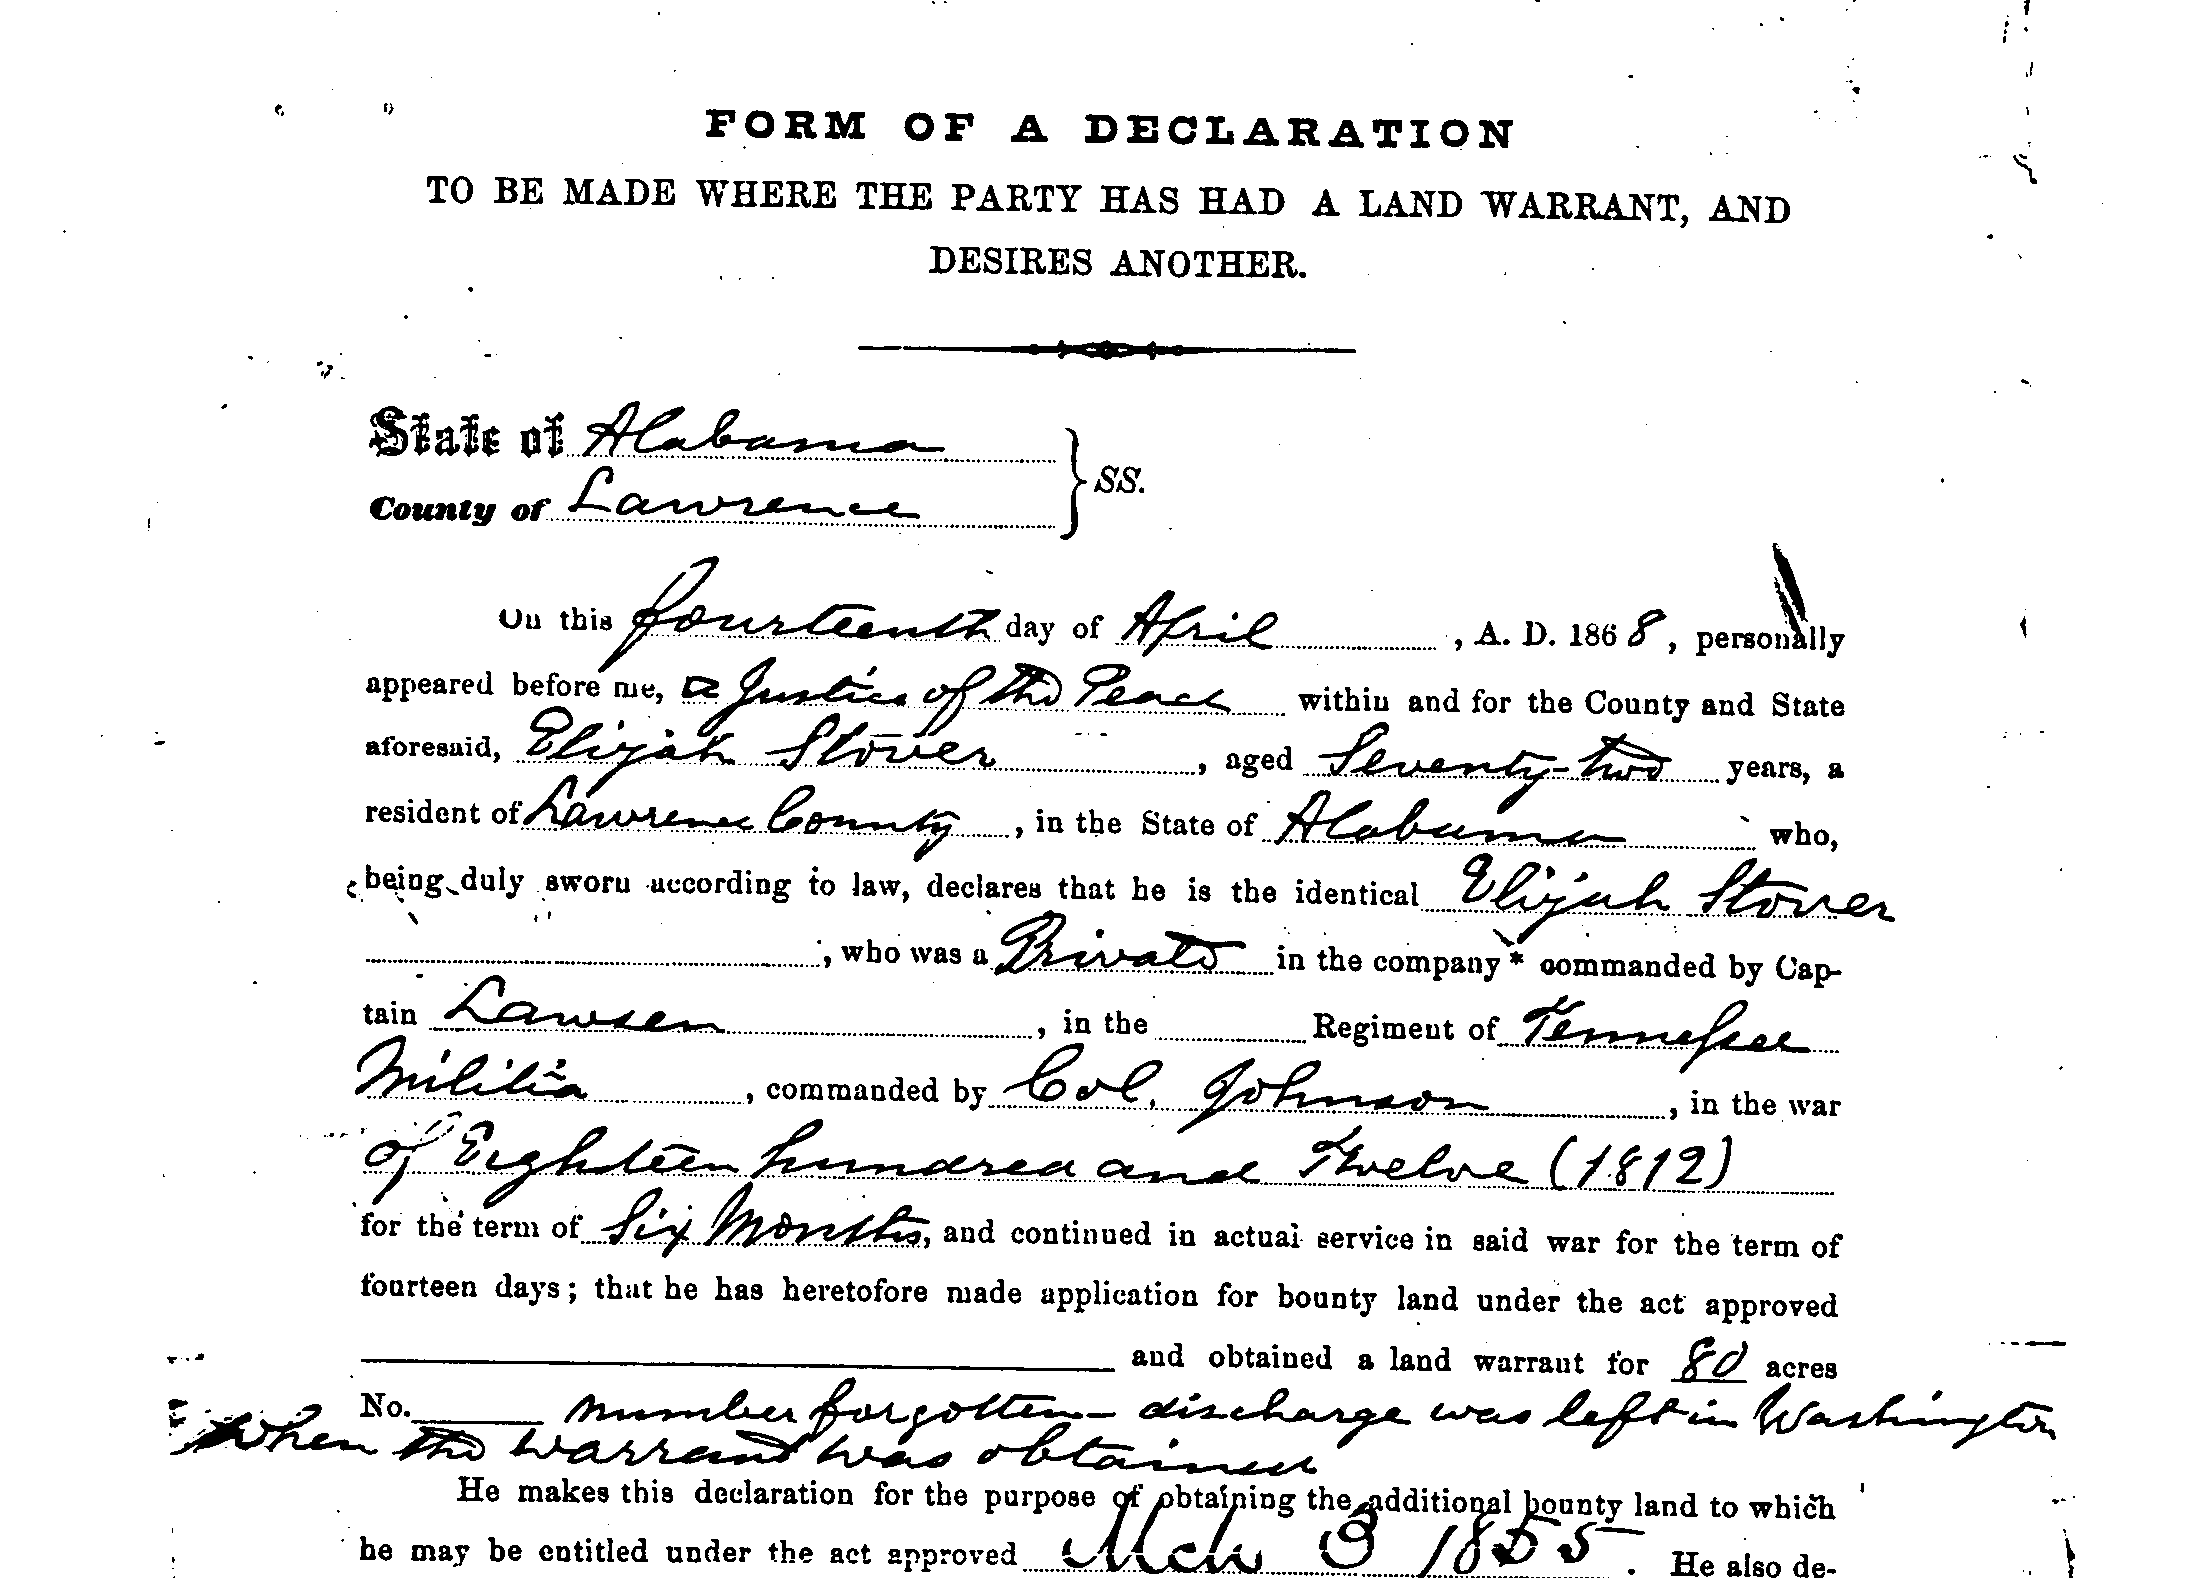 FORM OF A DECLARATION
TO BE MADE WHERE THE PARTY HAS HAD A LAND WARRANT, AND
DESIRES ANOTHER.
State of Alabama
County of Lawrence } SS.
On this fourteenth day of April, A. D. 1868, personally
appeared before me, a Justice of the Peace within and for the County and State
aforesaid, Elijah Stover, aged Seventy-two years, a
resident of Lawrence County, in the State of Alabama who,
being duly sworn according to law, declares that he is the identical Elijah Stover
, who was a Private in the company* commanded by Cap-
tain Lawsen, in the Regiment of Tennessee
Militia, commanded by Col. Johnson, in the war
of Eighteen hundred and Twelve (1812)
for the term of Six Months, and continued in actual service in said war for the term of
fourteen days; that he has heretofore made application for bounty land under the act approved
and obtained a land warrant for 80 acres
No. number forgotten - discharge was left in Washington
when the warrant was obtained
He makes this declaration for the purpose of obtaining the additional bounty land to which
he may be entitled under the act approved Mch 3 1855. He also de-